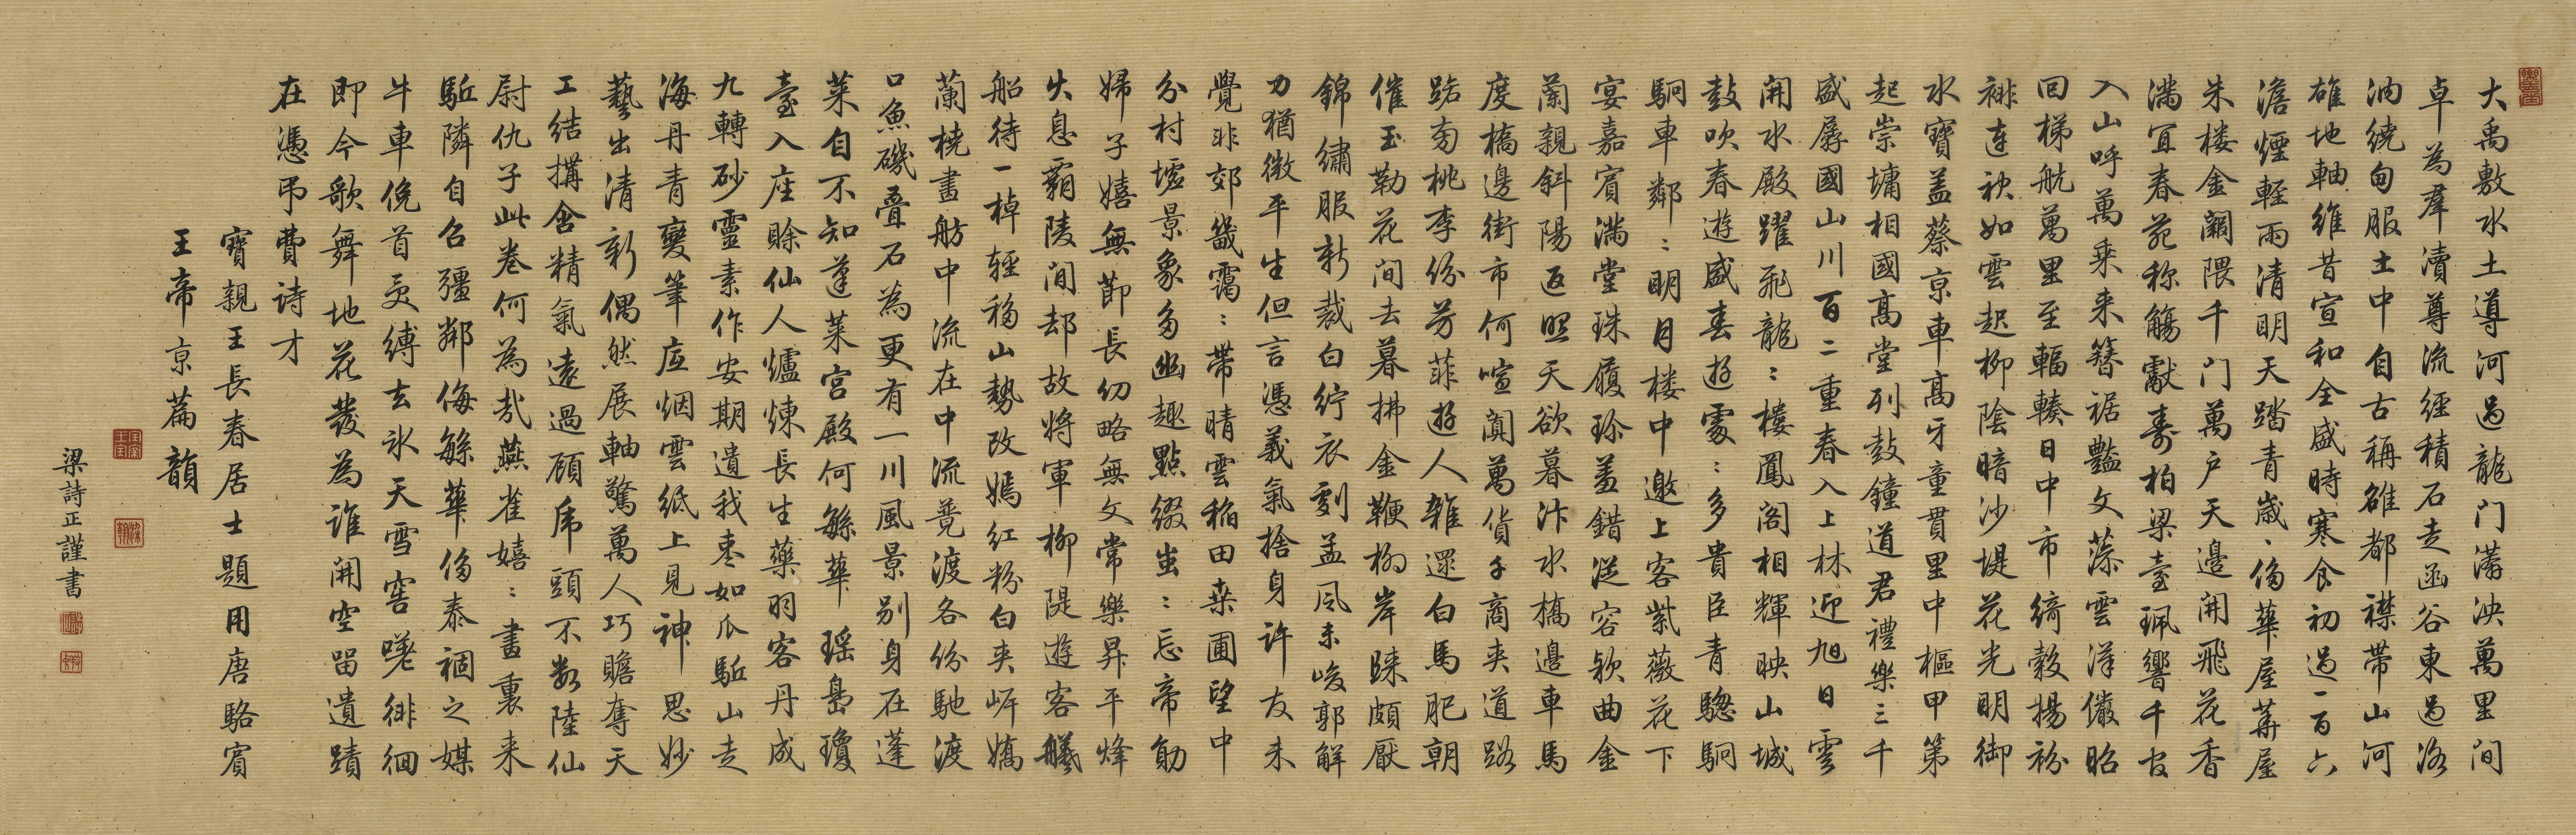 大禹敷水土導河過龍門滿泱萬里間
卓為羣瀆尊流經積石走函谷東過洛
汭繞甸服土中自古稱雄都襟帶山河
雄地軸維昔宣和全盛時寒食初過一百六
澹煙輕雨清明天踏青歲歲侈華屋華屋
朱樓金闕隈千門萬户天邊開飛花香
滿宜春苑称觴獻壽柏梁臺珮響千官
入山呼萬乘来簪裾豔文藻雲漢儼昭
回梯航萬里至輻輳日中市綺縠揚衯
裶連袂如雲起柳陰暗沙堤花光明御
水寶盖蔡京車高牙童貫里中樞甲第
起崇墉相國高堂列鼓鐘道君禮樂三千
盛孱國山川百二重春入上林迎旭日雲
開水殿躍飛龍龍樓鳳閣相輝映山城
鼓吹春遊盛春遊處處多貴臣青驄駉
駉車鄰鄰明月楼中邀上客紫薇花下
宴嘉賓滿堂珠履珍羞錯從容欵曲金
蘭親斜陽返照天欲暮汴水橋邊車馬
度橋邊街市何喧闐萬貨千商夾道路
路旁桃李份芳菲遊人雜還白馬肥朝
催玉勒花間去暮拂金鞭栁岸歸頗厭
錦繡服新裁白紵衣劇孟風未峻郭解
力猶微平生但言憑義氣捨身許友未
覺非郊畿靄靄帶晴雲稲田桒圃望中
分村墟景象多幽趣點綴蚩蚩忘帝勛
婦子嬉無節長幼略無文常樂昇平烽
火息覇陵間却故将軍柳隄遊客艤
船待一棹輕移山勢改嫣紅粉白夾岍嬌
蘭橈畫舫中流在中流競渡各份馳渡
口魚磯疊石為更有一川風景别身在蓬
莱自不知蓬莱宮殿何緐華瑶島瓊
臺入座賒仙人爐煉長生藥羽客丹成
九轉砂靈素作安期遺我枣如瓜駈山走
海丹青變筆底烟雲紙上見神思妙
藝出清新偶然展軸驚萬人巧贍奪天
工結搆含精氣遠過顧虎頭不數陸仙
尉仇子此卷何為哉燕雀嬉嬉畫裏来
駈隣自召彊鄰侮緐華侈泰禍之媒
牛車俛首受縛去氷天雪窖嗟徘徊
即今歌舞地花發為誰開空留遺蹟
在憑弔費詩才
寶親王長春居士題用唐駱賓
王帝京篇韻
梁詩正謹書